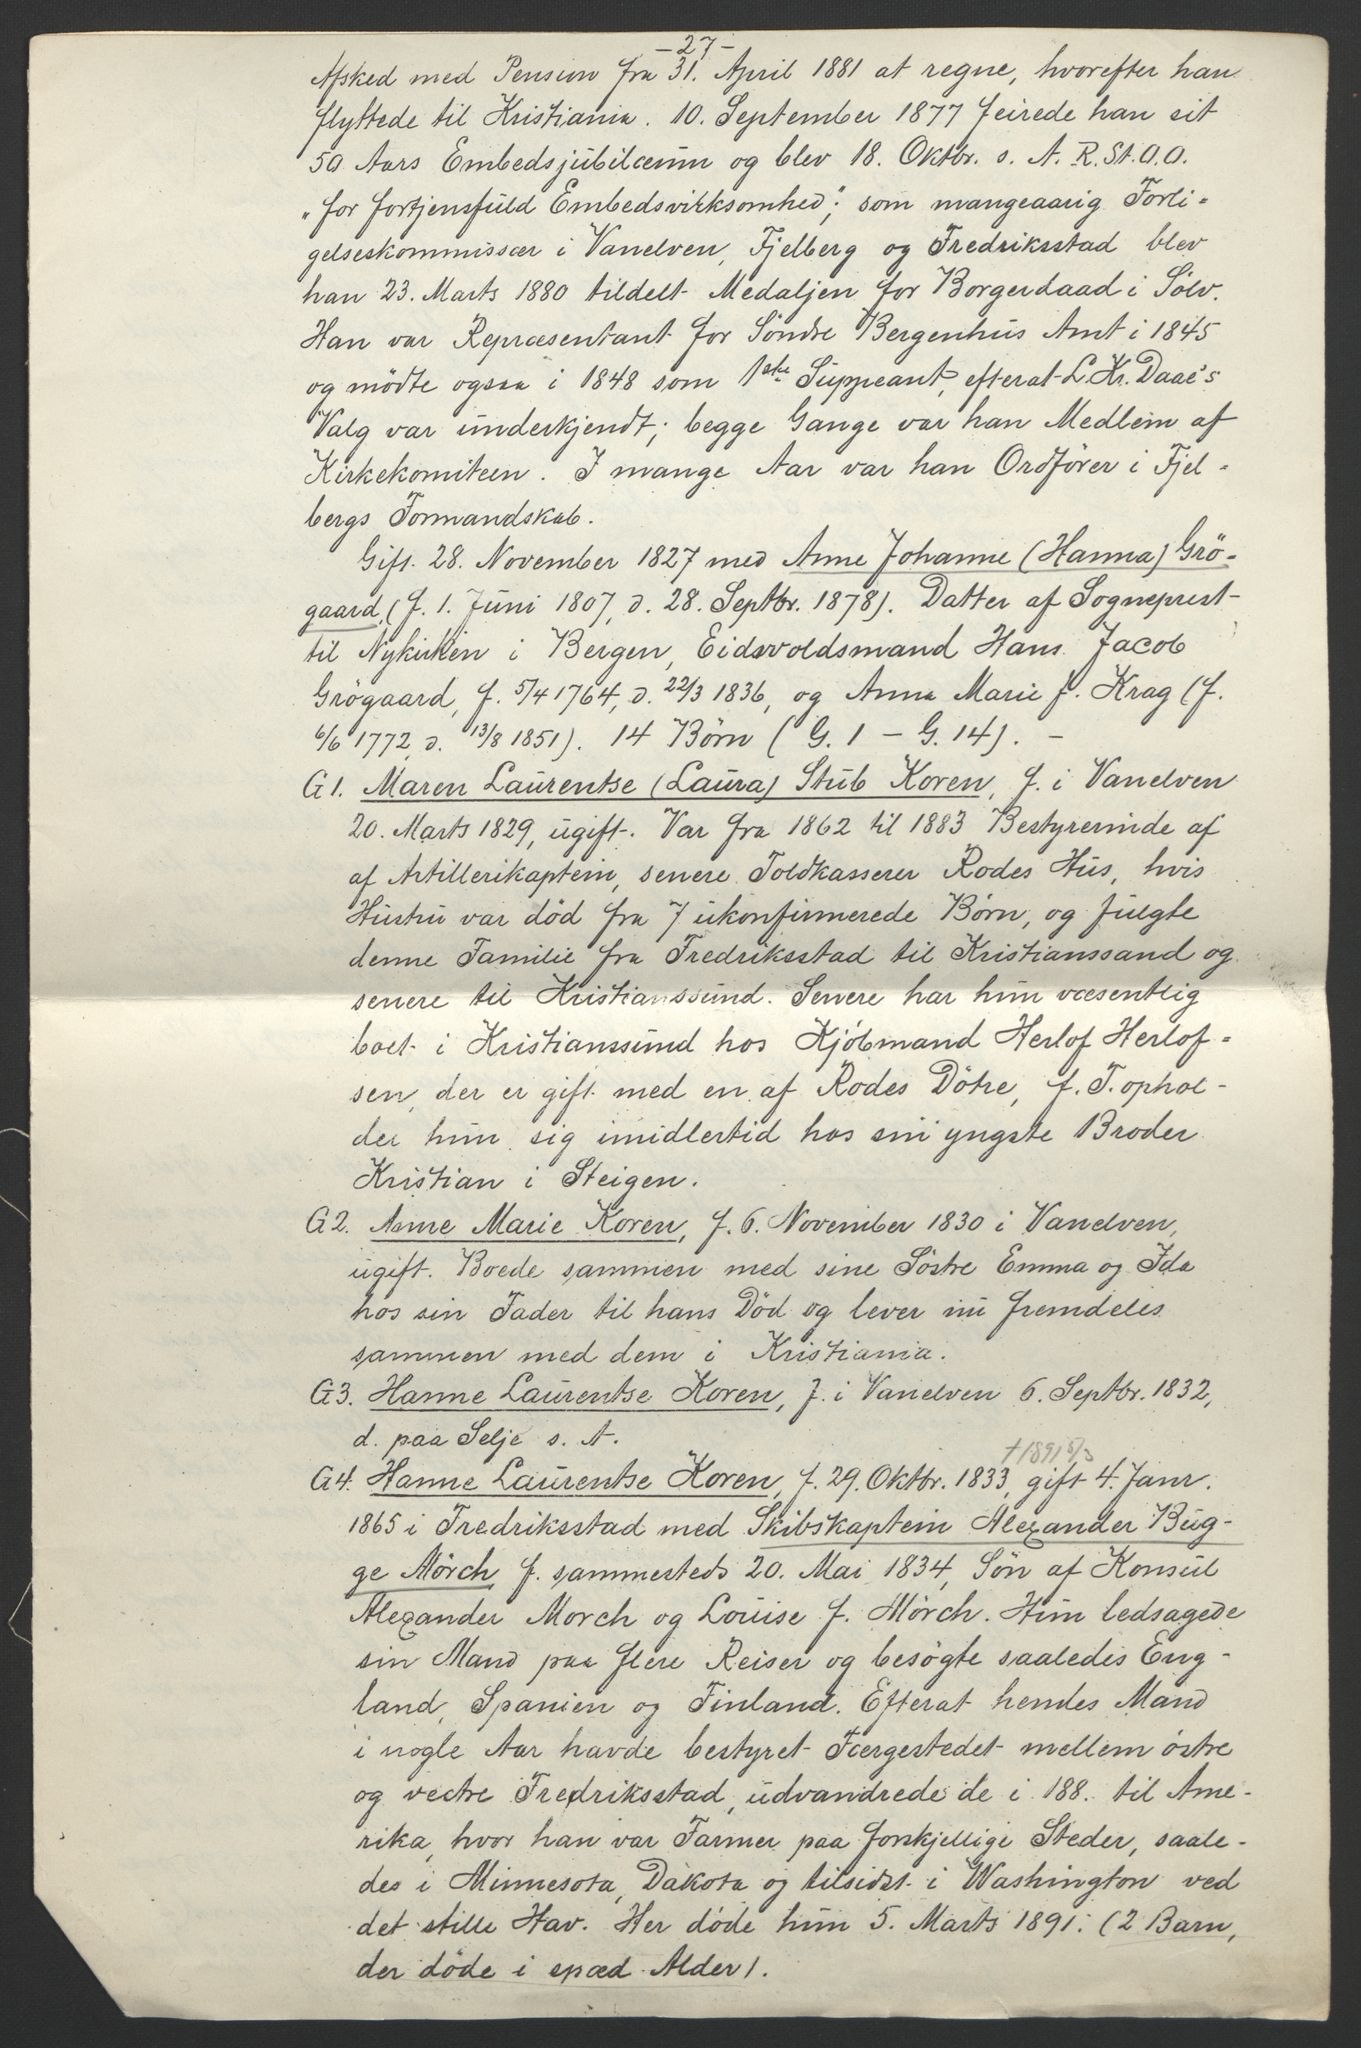 -27-
Afsked med Pension fra 31. April 1881 at regne, hvorefter han
flyttede til Kristiania. 10. September 1877 feirede han sit
50 Aars Embedsjubilæum og blev 18. Oktbr. s. A. R. St. O. O.
"for fortjensfuld Embedsvirksomhed"; som mangeaarig Forli-
gelseskommissær i Vanelven, Fjelberg og Fredriksstad blev
han 23. Marts 1880 tildelt Medaljen for Borgerdaad i Sölv.
Han var Repræsentant for Söndre Bergenhus Amt i 1845
og mödte ogsaa i 1848 som 1ste Suppeant, efterat L. Kr. Daae's
Valg var underkjendt; begge Gange var han Medlem af
Kirkekomiteen. I mange Aar var han Ordförer i Fjel-
bergs Formandskab.
Gift 28. November 1827 med Anne Johanne (Hanna) Grö-
gaard, (f. 1. Juni 1807, d. 28. Septbr. 1878). Datter af Sogneprest
til Nykirken i Bergen, Eidsvoldsmand Hans Jacob
Grögaard, f. 5/4 1764, d. 22/3 1836, og Anna Marie f. Krag (f.
6/6 1772, d. 13/8 1851). 14 Börn (G. 1 - G. 14). -
G1. Maren Laurentse (Laura) Stub Koren, f. i Vanelven
20. Marts 1829, ugift. Var fra 1862 til 1883 Bestyrerinde af
af Artillerikaptein, senere Toldkasserer Rodes Hus, hvis
Hustru var död fra 7 ukonfirmerede Börn, og fulgte
denne Familie fra Fredriksstad til Kristianssand og
senere til Kristianssund. Senere har hun væsentlig
boet i Kristianssund hos Kjöbmand Herlof Herlof-
sen, der er gift med en af Rodes Dötre, f. T. ophol-
der hun sig imidlertid hos sin yngste Broder
Kristian i Steigen.
G2. Anne Marie Koren, f. 6. November 1830 i Vanelven,
ugift. Boede sammen med sine Söstre Emma og Ida
hos sin Fader til hans Död og lever nu fremdeles
sammen med dem i Kristiania.
G3. Hanne Laurentse Koren, f. i Vanelven 6. Septbr. 1832,
d. paa Selje s. A.
† 1891 5/3
G4. Hanne Laurentse Koren, f. 29. Oktbr. 1833, gift 4. Janr.
1865 i Fredriksstad med Skibskaptein Alexander Bug-
ge Mörch f. sammesteds 20. Mai 1834, Sön af Konsul
Alexander Morch og Louise f. Mörch. Hun ledsagede
sin Mand paa flere Reiser og besögte saaledes Eng-
land, Spanien og Finland. Efterat hendes Mand
i nogle Aar havde bestyret Færgestedet mellem östre
og vestre Fredriksstad, udvandrede de i 188. til Ame-
rika, hvor han var Farmer paa forskjellige Steder, saale-
des i Minnesota, Dakota og tilsidst i Washington ved
det stille Hav. Her döde hun 5. Marts 1891. (2 Barn,
der döde i spæd Alder).